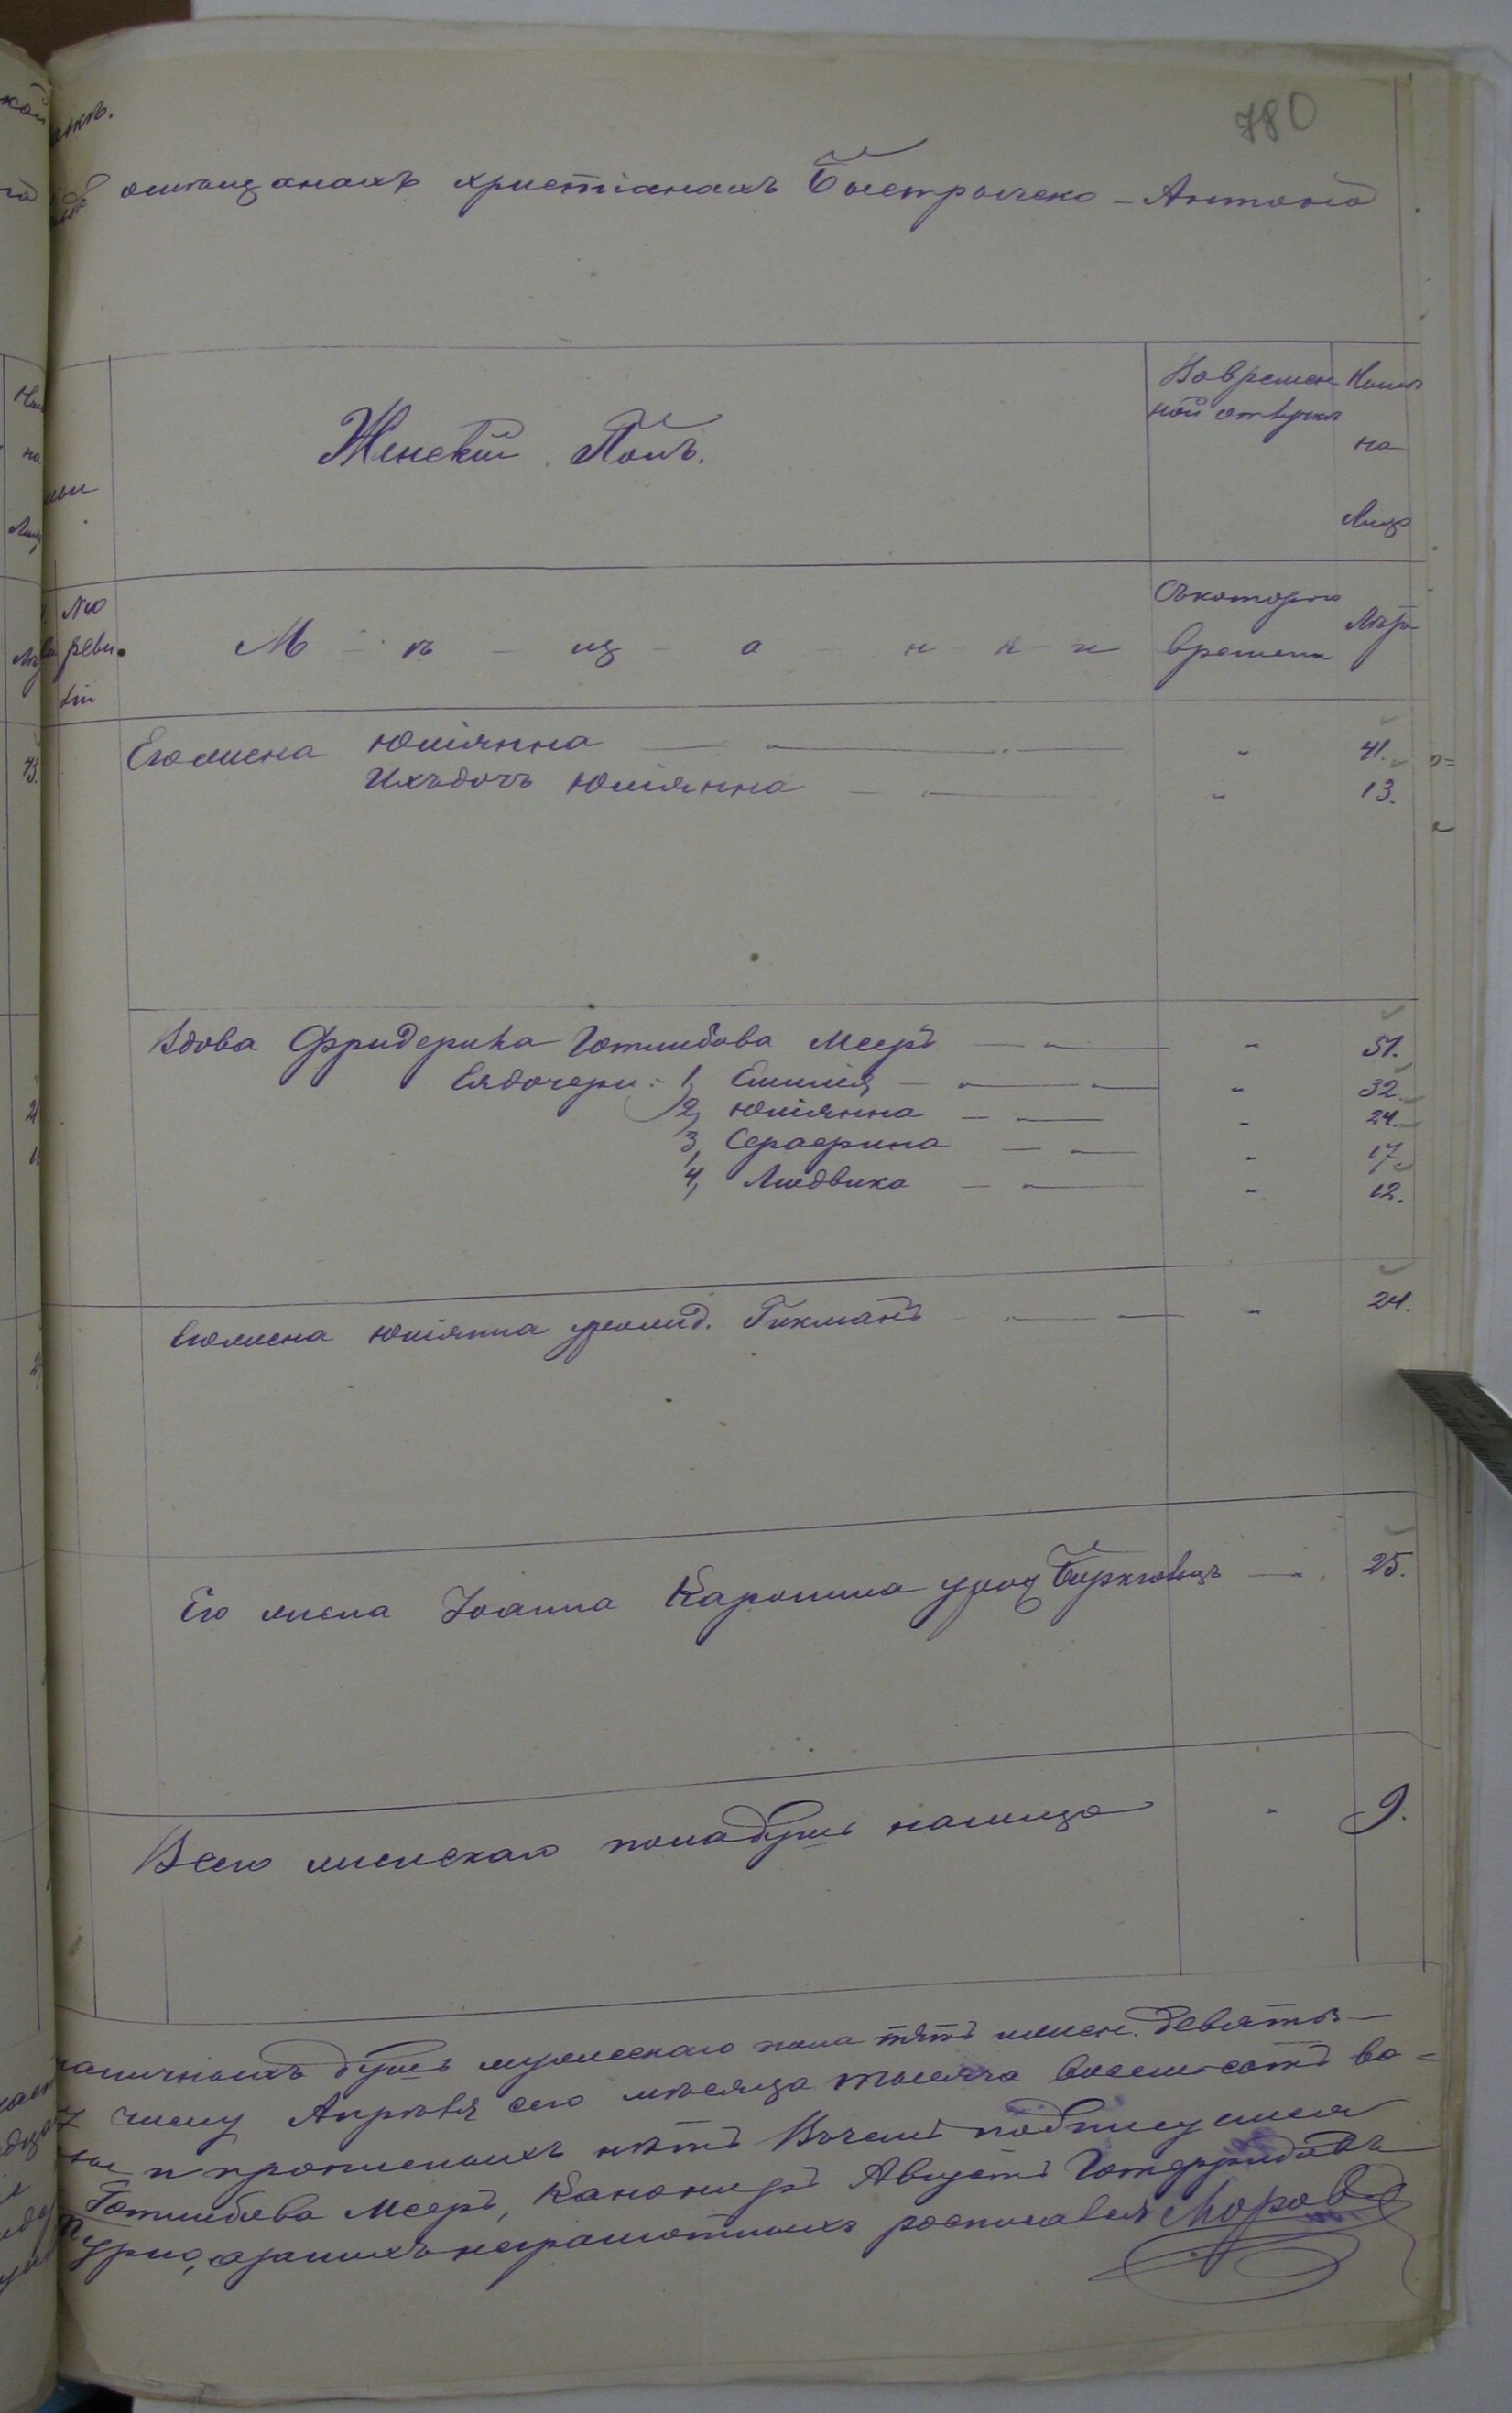 780
о мещанахъ христіанахъ Быстрыческо-Антоно
Женскій Полъ.
Во времен
ной отлучкѣ
Нынѣ
на
Лицо
№
реви
зіи
М - ѣ - щ - а - н - к - и
Съ котораго
времени
Лѣта
Его жена Юліянна — " — " 41.
Ихъ дочь Юліянна — " — " 13.
Вдова Фридерика Готлибова Мееръ — " — " 51.
Ея дочери: 1, Емилія — " — " 32.
2, Юліянна — " — " 24.
3, Сераерина — " — " 17.
4, Людвика — " — " 12.
Его жена Юліянна урожд. Гикманъ — " — " 24.
Его жена Іоанна Каролина урож — " 25.
Всего женскаго пола душъ налицо " 9.
наличныхъ душъ мужескаго пола пять женск. девять
7 числу Апрѣля сего мѣсяца тысяча восемьсотъ во=
и прописныхъ нѣтъ Въ чемъ подписуемся
Готлибова Мееръ, Канониръ Августъ Готфридовъ
а за нихъ неграмотныхъ росписался Моровъ